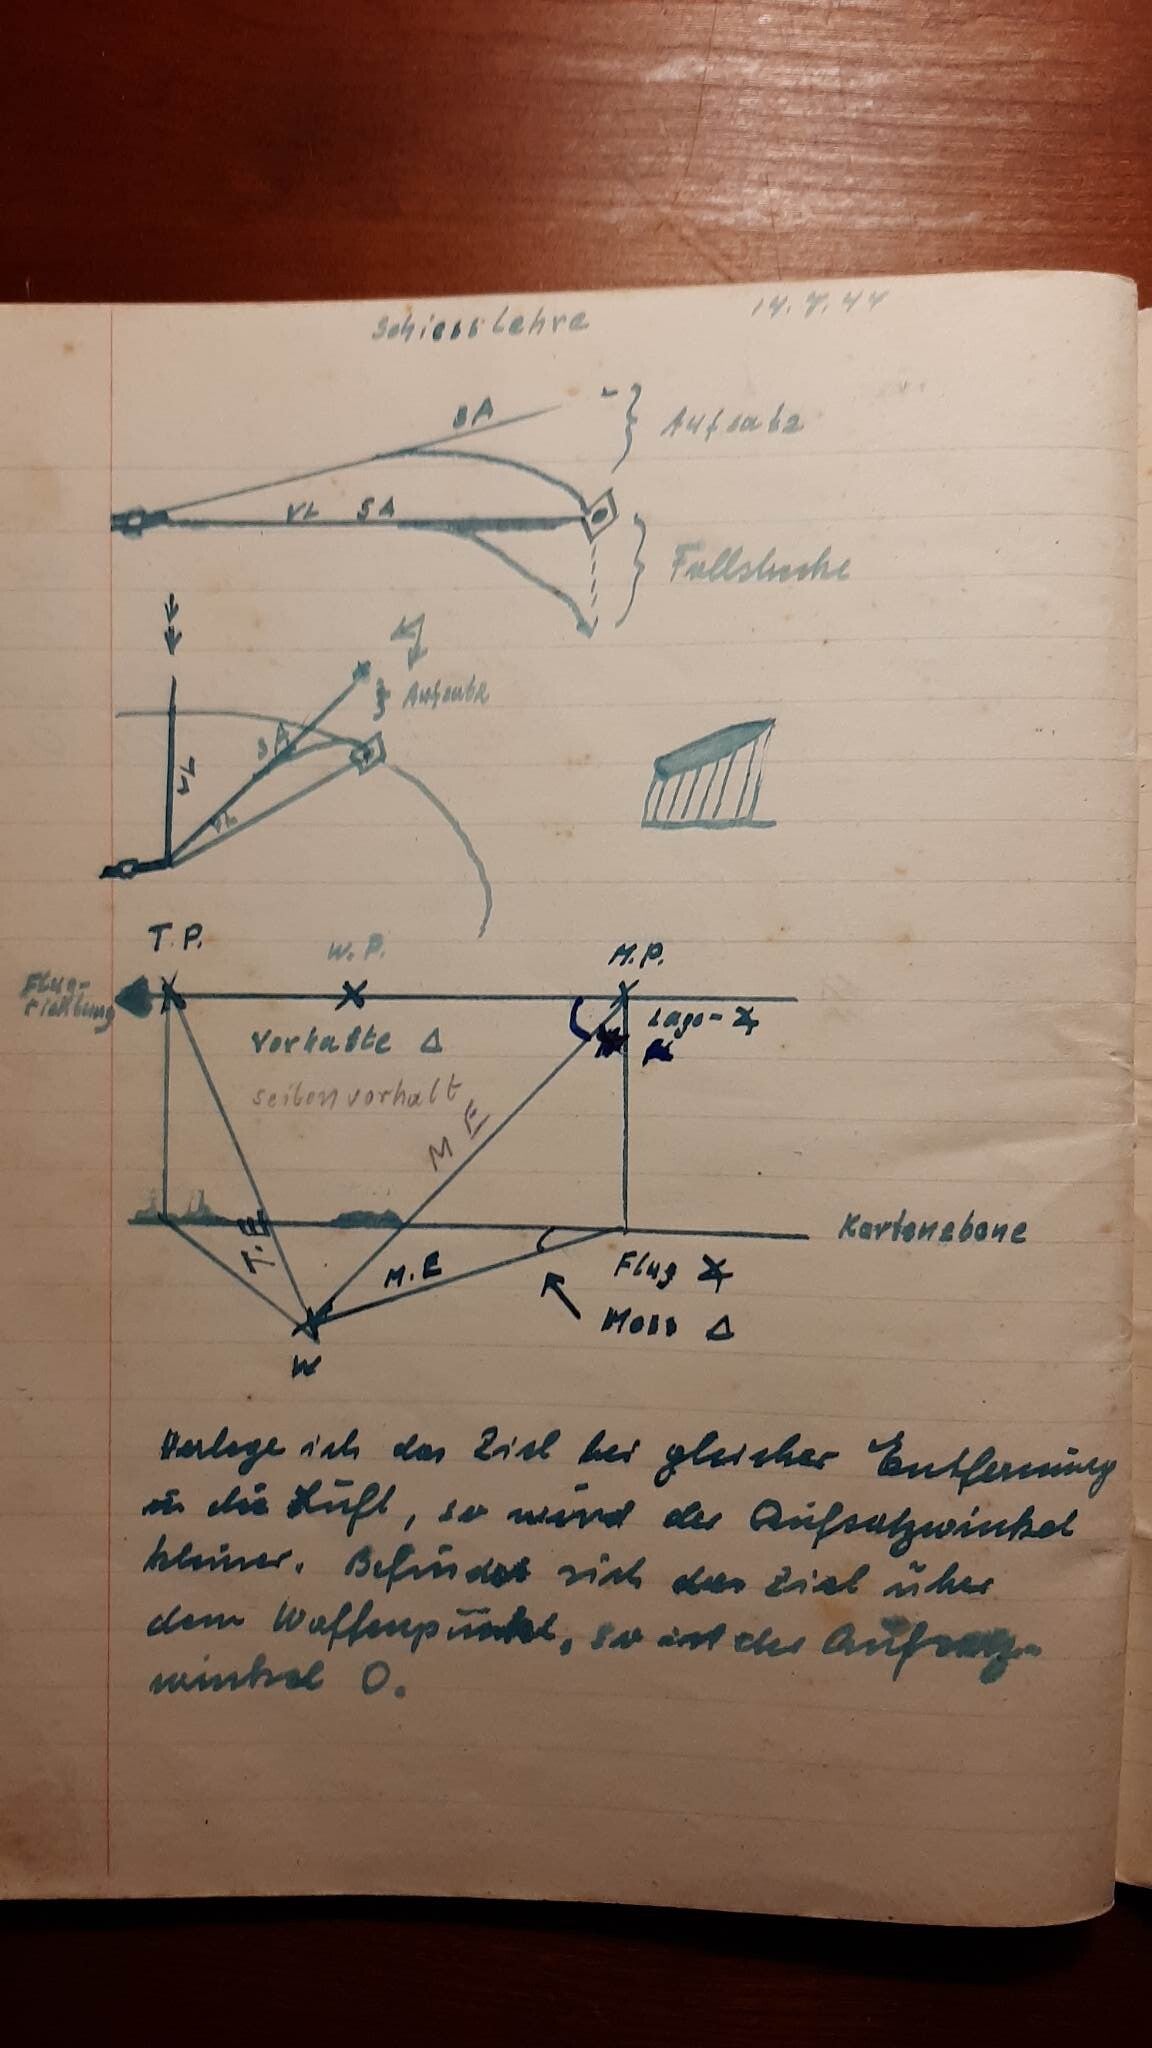 Schiesslehre 14.7.44
SA
Aufsatz
VL SA
Fallstrecke
Aufsatz
SA
VL
VL
T.P. W.P. M.P.
Flug-
richtung
Lage-∡
Vorhalte Δ
Seitenvorhalt
M E
T.E
Kartenebene
M.E
Flug ∡
Mess Δ
W
Verlege ich das Ziel bei gleicher Entfernung
in die Luft, so wird der Aufsatzwinkel
kleiner. Befindet sich das Ziel über
dem Waffenpunkt, so ist der Aufsatz-
winkel 0.